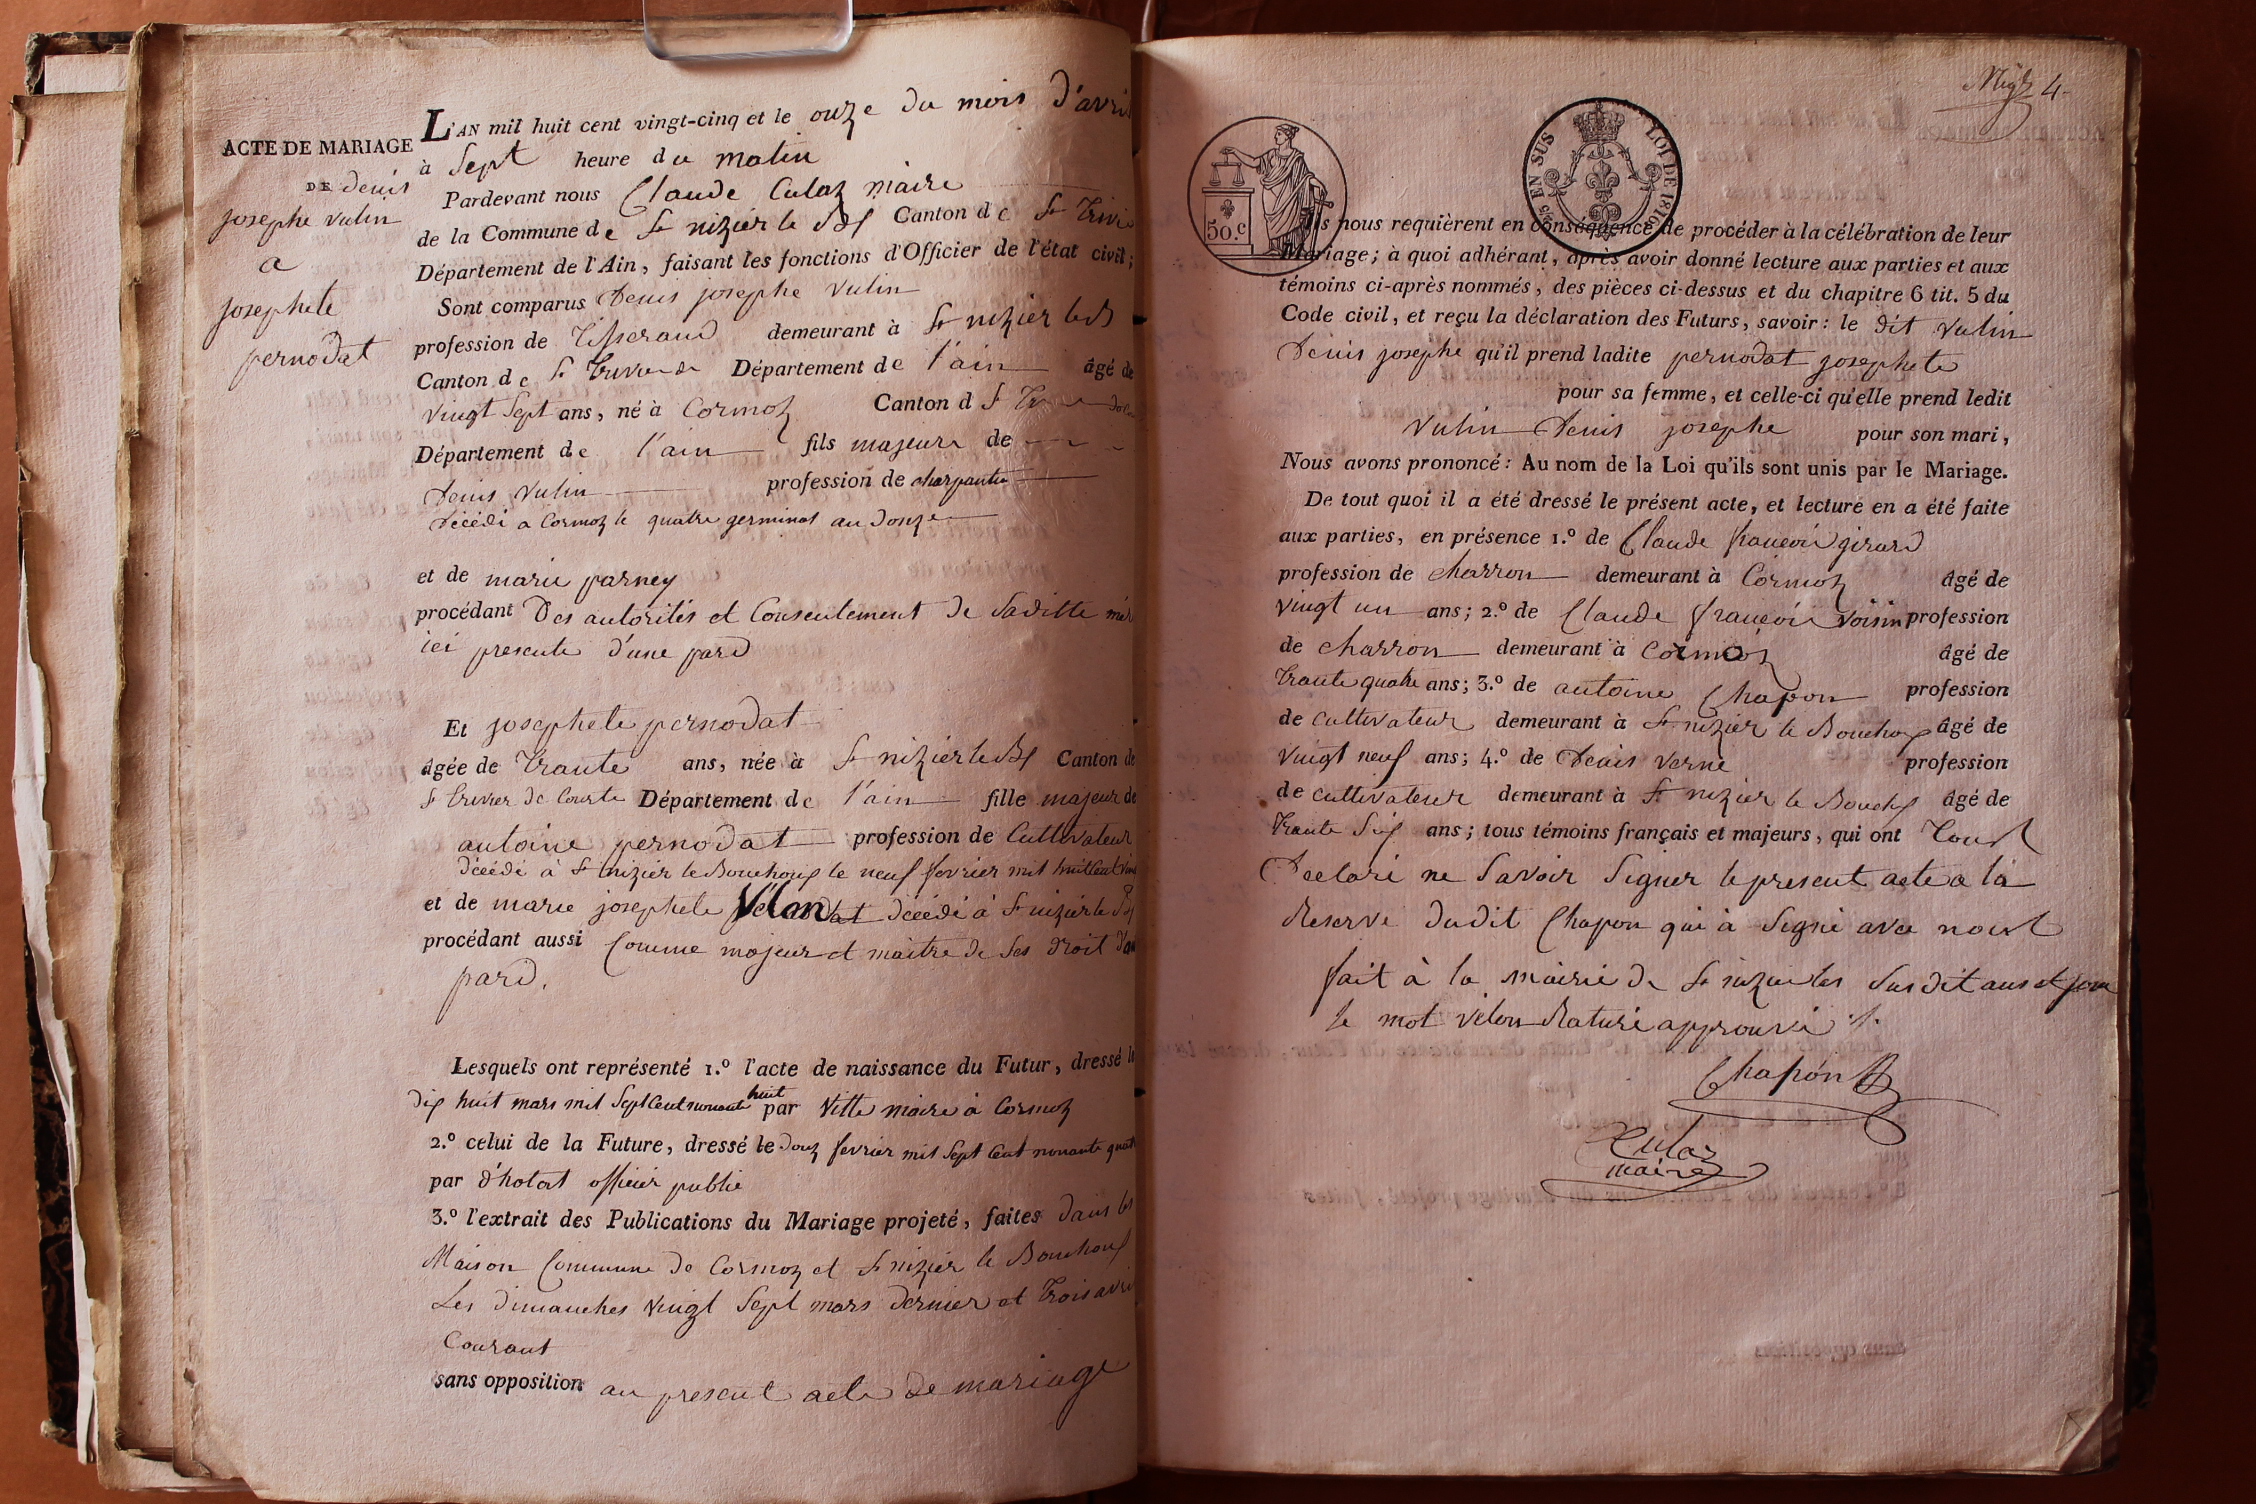 ACTE DE MARIAGE
DE denis
josephe vulin
a
josephete
pernodat
L'AN mil huit cent vingt-cinq et le onze du mois d'avri
à Sept heure du matin
Pardevant nous Claude Culaz maire
de la Commune de St nizier le Bx Canton de St Trivi
Département de l'Ain, faisant les fonctions d'Officier de l'état civil;
Sont comparus Denis josephe vulin
profession de Tisserand demeurant à St nizier le B
Canton de St Trivier de Département de l'ain âgé de
vingt Sept ans, né à Cormoz Canton d St
Département de l'ain fils majeur de
Denis vulin profession de charpentier
Décédé a Cormoz le quatre germinal an Douze
et de marie parney
procédant Des autorités et Consentement de Saditte mèr
ici presente d'une pard
Et josephete pernodat
âgée de Trante ans, née à St nizier le Bx Canton de
St Trivier de Courte Département de l'ain fille majeur de
antoine pernodat profession de Cultivateur
décédé à St nizier le Bouchoux le neuf fevrier mil huit Cent vin
et de marie josephete Vélon dat décédé à St nizier le Bx
procédant aussi Comme majeur et maitre de Ses droit d'au
pard.
Lesquels ont représenté 1.º l'acte de naissance du Futur, dressé le
dix huit mars mil Sept Cent nonante huit par Vitte maire à Cormoz
2.º celui de la Future, dressé le douz fevrier mil Sept Cent nonante quat
par d'hotat officier public
3.º l'extrait des Publications du Mariage projeté, faites dans les
Maison Commune de Cormoz et St nizier le Bouchoux
Les dimanches vingt Sept mars dernier et Trois avri
Courant
sans opposition au present acte de mariage
4.
EN SUS
LOI DE 1816
50.c
Ils nous requièrent en conséquence de procéder à la célébration de leur
Mariage; à quoi adhérant, après avoir donné lecture aux parties et aux
témoins ci-après nommés, des pièces ci-dessus et du chapitre 6 tit. 5 du
Code civil, et reçu la déclaration des Futurs, savoir: le dit vulin
Denis josephe qu'il prend ladite pernodat josephete
pour sa femme, et celle-ci qu'elle prend ledit
vulin Denis josephe pour son mari,
Nous avons prononcé: Au nom de la Loi qu'ils sont unis par le Mariage.
De tout quoi il a été dressé le présent acte, et lecture en a été faite
aux parties, en présence 1.º de Claude francois girard
profession de charron demeurant à Cormoz âgé de
vingt un ans; 2.º de Claude francois voisin profession
de charron demeurant à Cormoz âgé de
Trante quatre ans; 3.º de antoine Chapon profession
de Cultivateur demeurant à St nizier le Bouchoux âgé de
vingt neuf ans; 4.º de Denis verne profession
de cultivateur demeurant à St nizier le Bouchx âgé de
Trante Six ans; tous témoins français et majeurs, qui ont Tous
Declaré ne Savoir Signer le present acte a la
Reserve dudit Chapon qui à Signé avec nous
fait à la mairie de St nizier les Susdit ans et jour
le mot vélon Raturé approuvé
Chapon
Culaz
maire